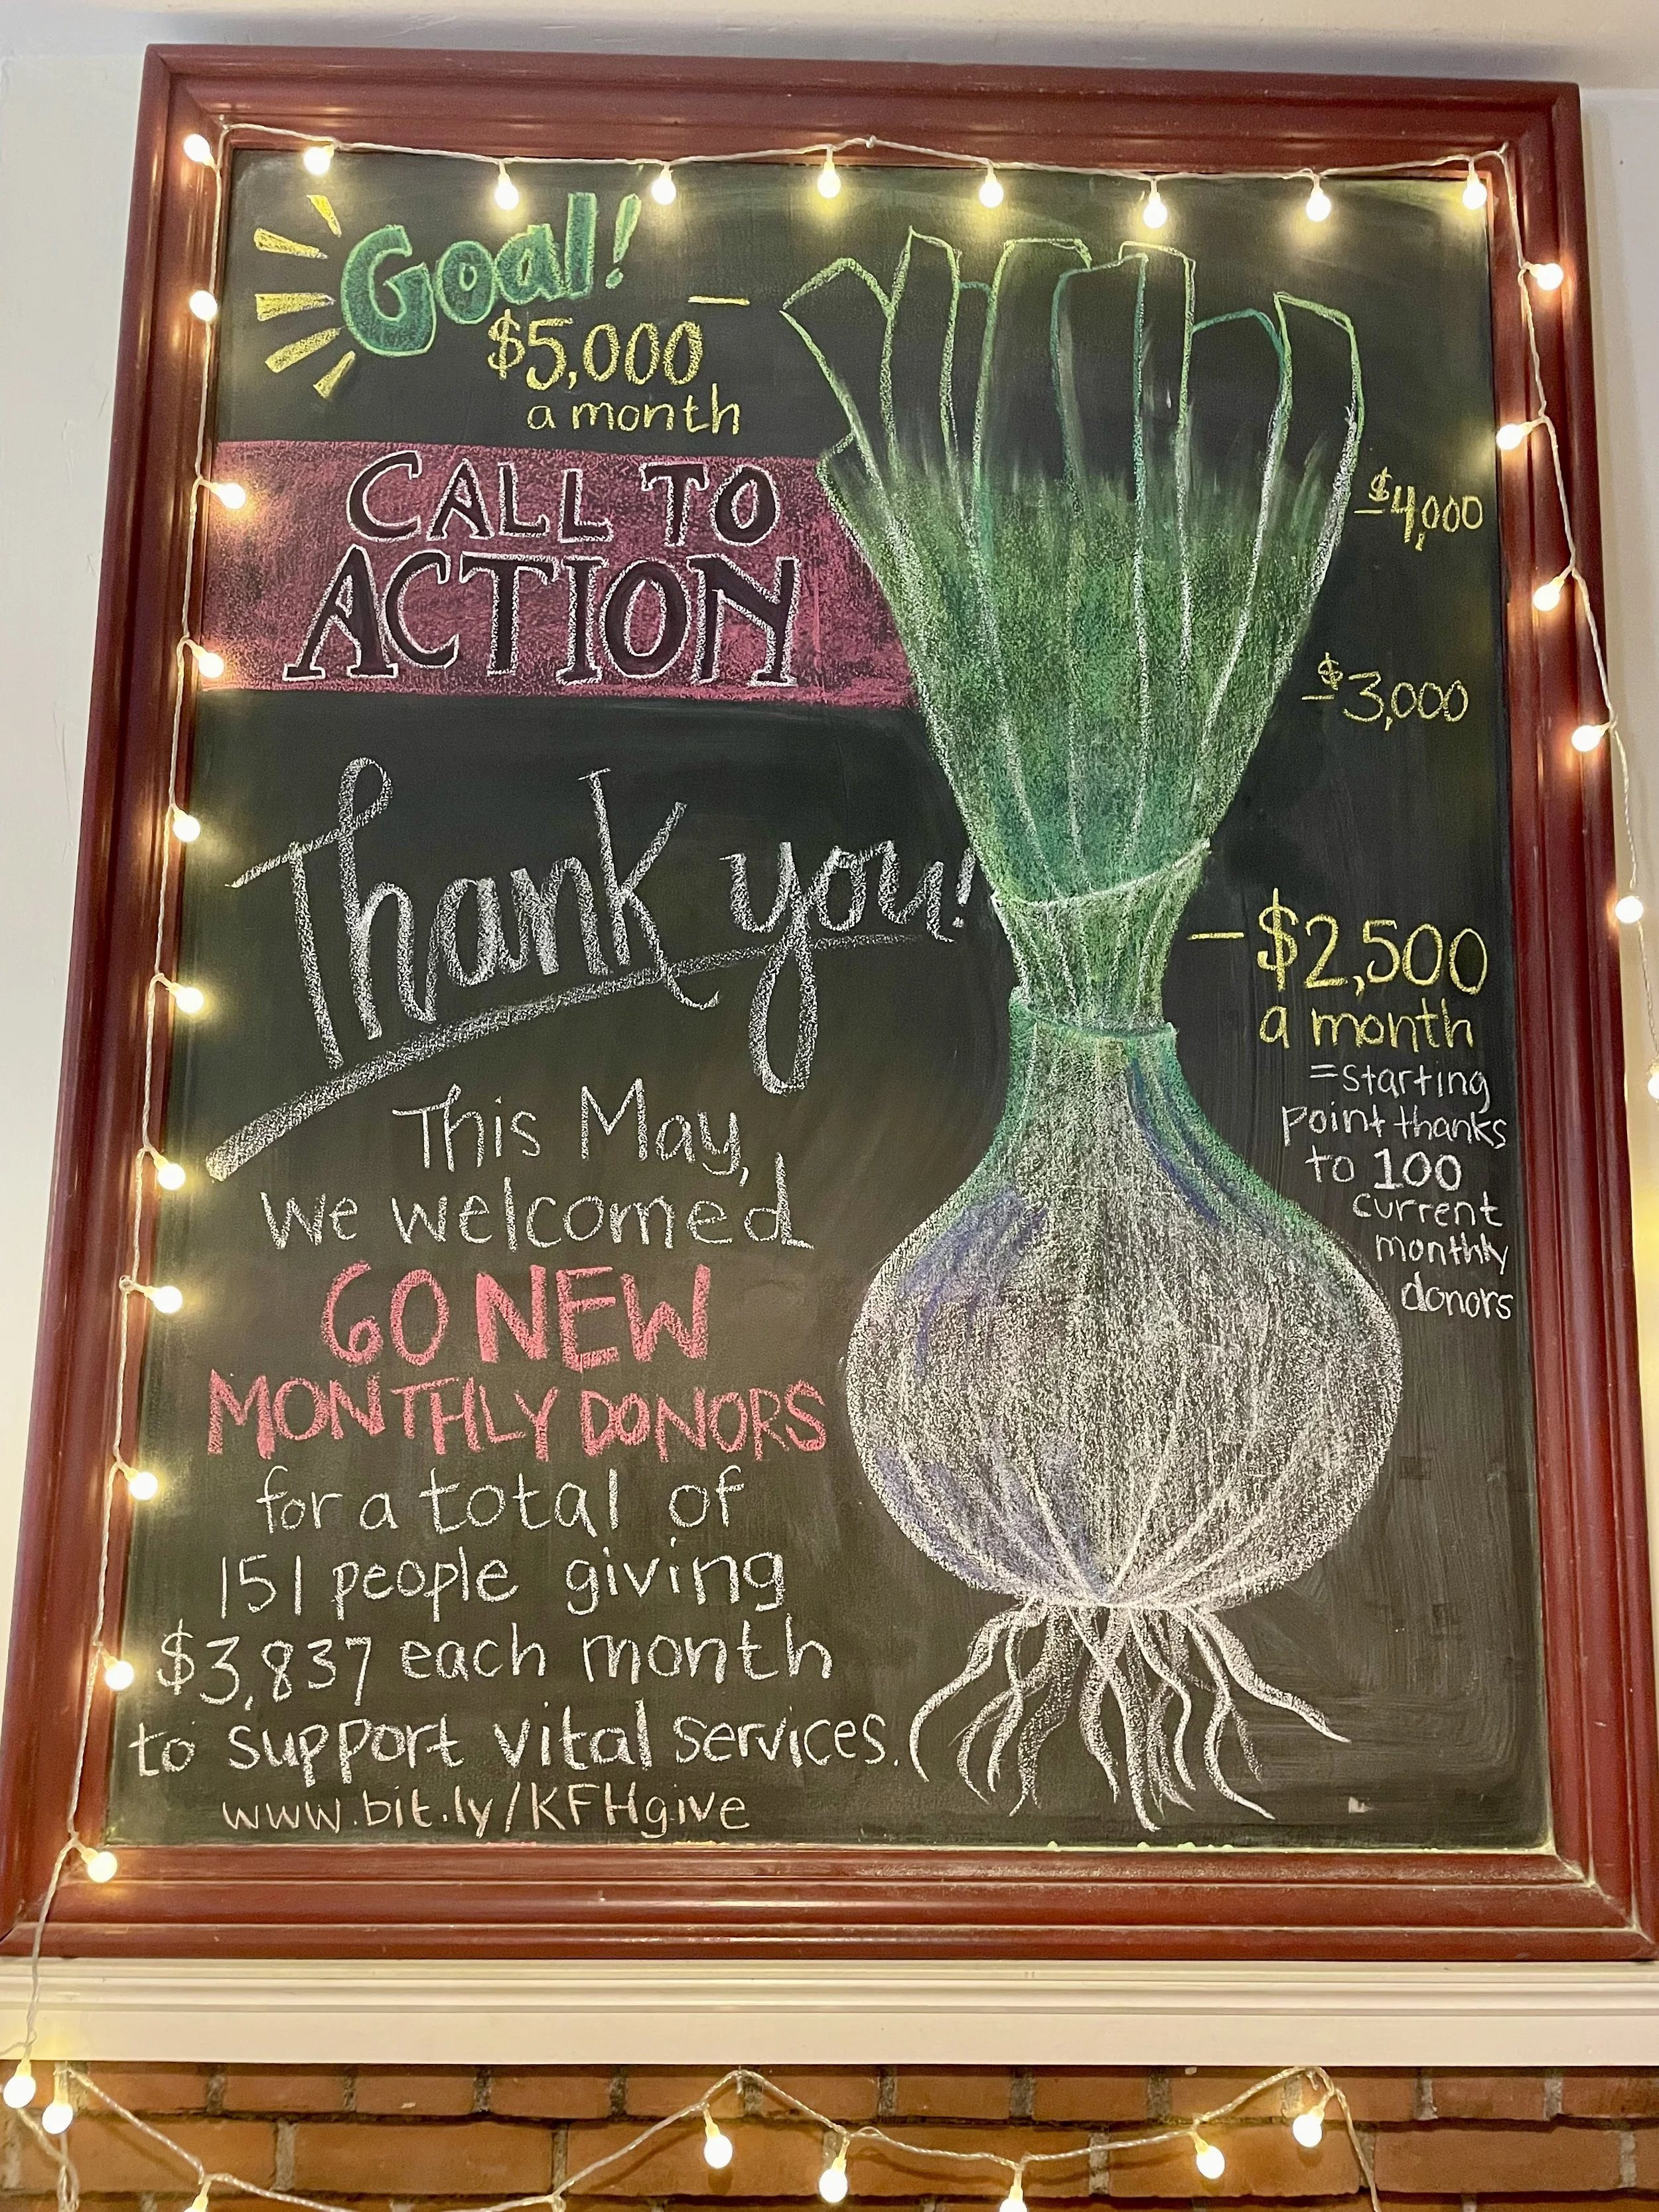 Goal!
$5,000
a month
CALL TO
ACTION
$4,000
$3,000
Thank you!
$2,500
a month
=starting
point thanks
to 100
current
monthly
donors
This May,
we welcomed
60 NEW
MONTHLY DONORS
for a total of
151 people giving
$3,837 each month
to support vital services.
www.bit.ly/KFHgive